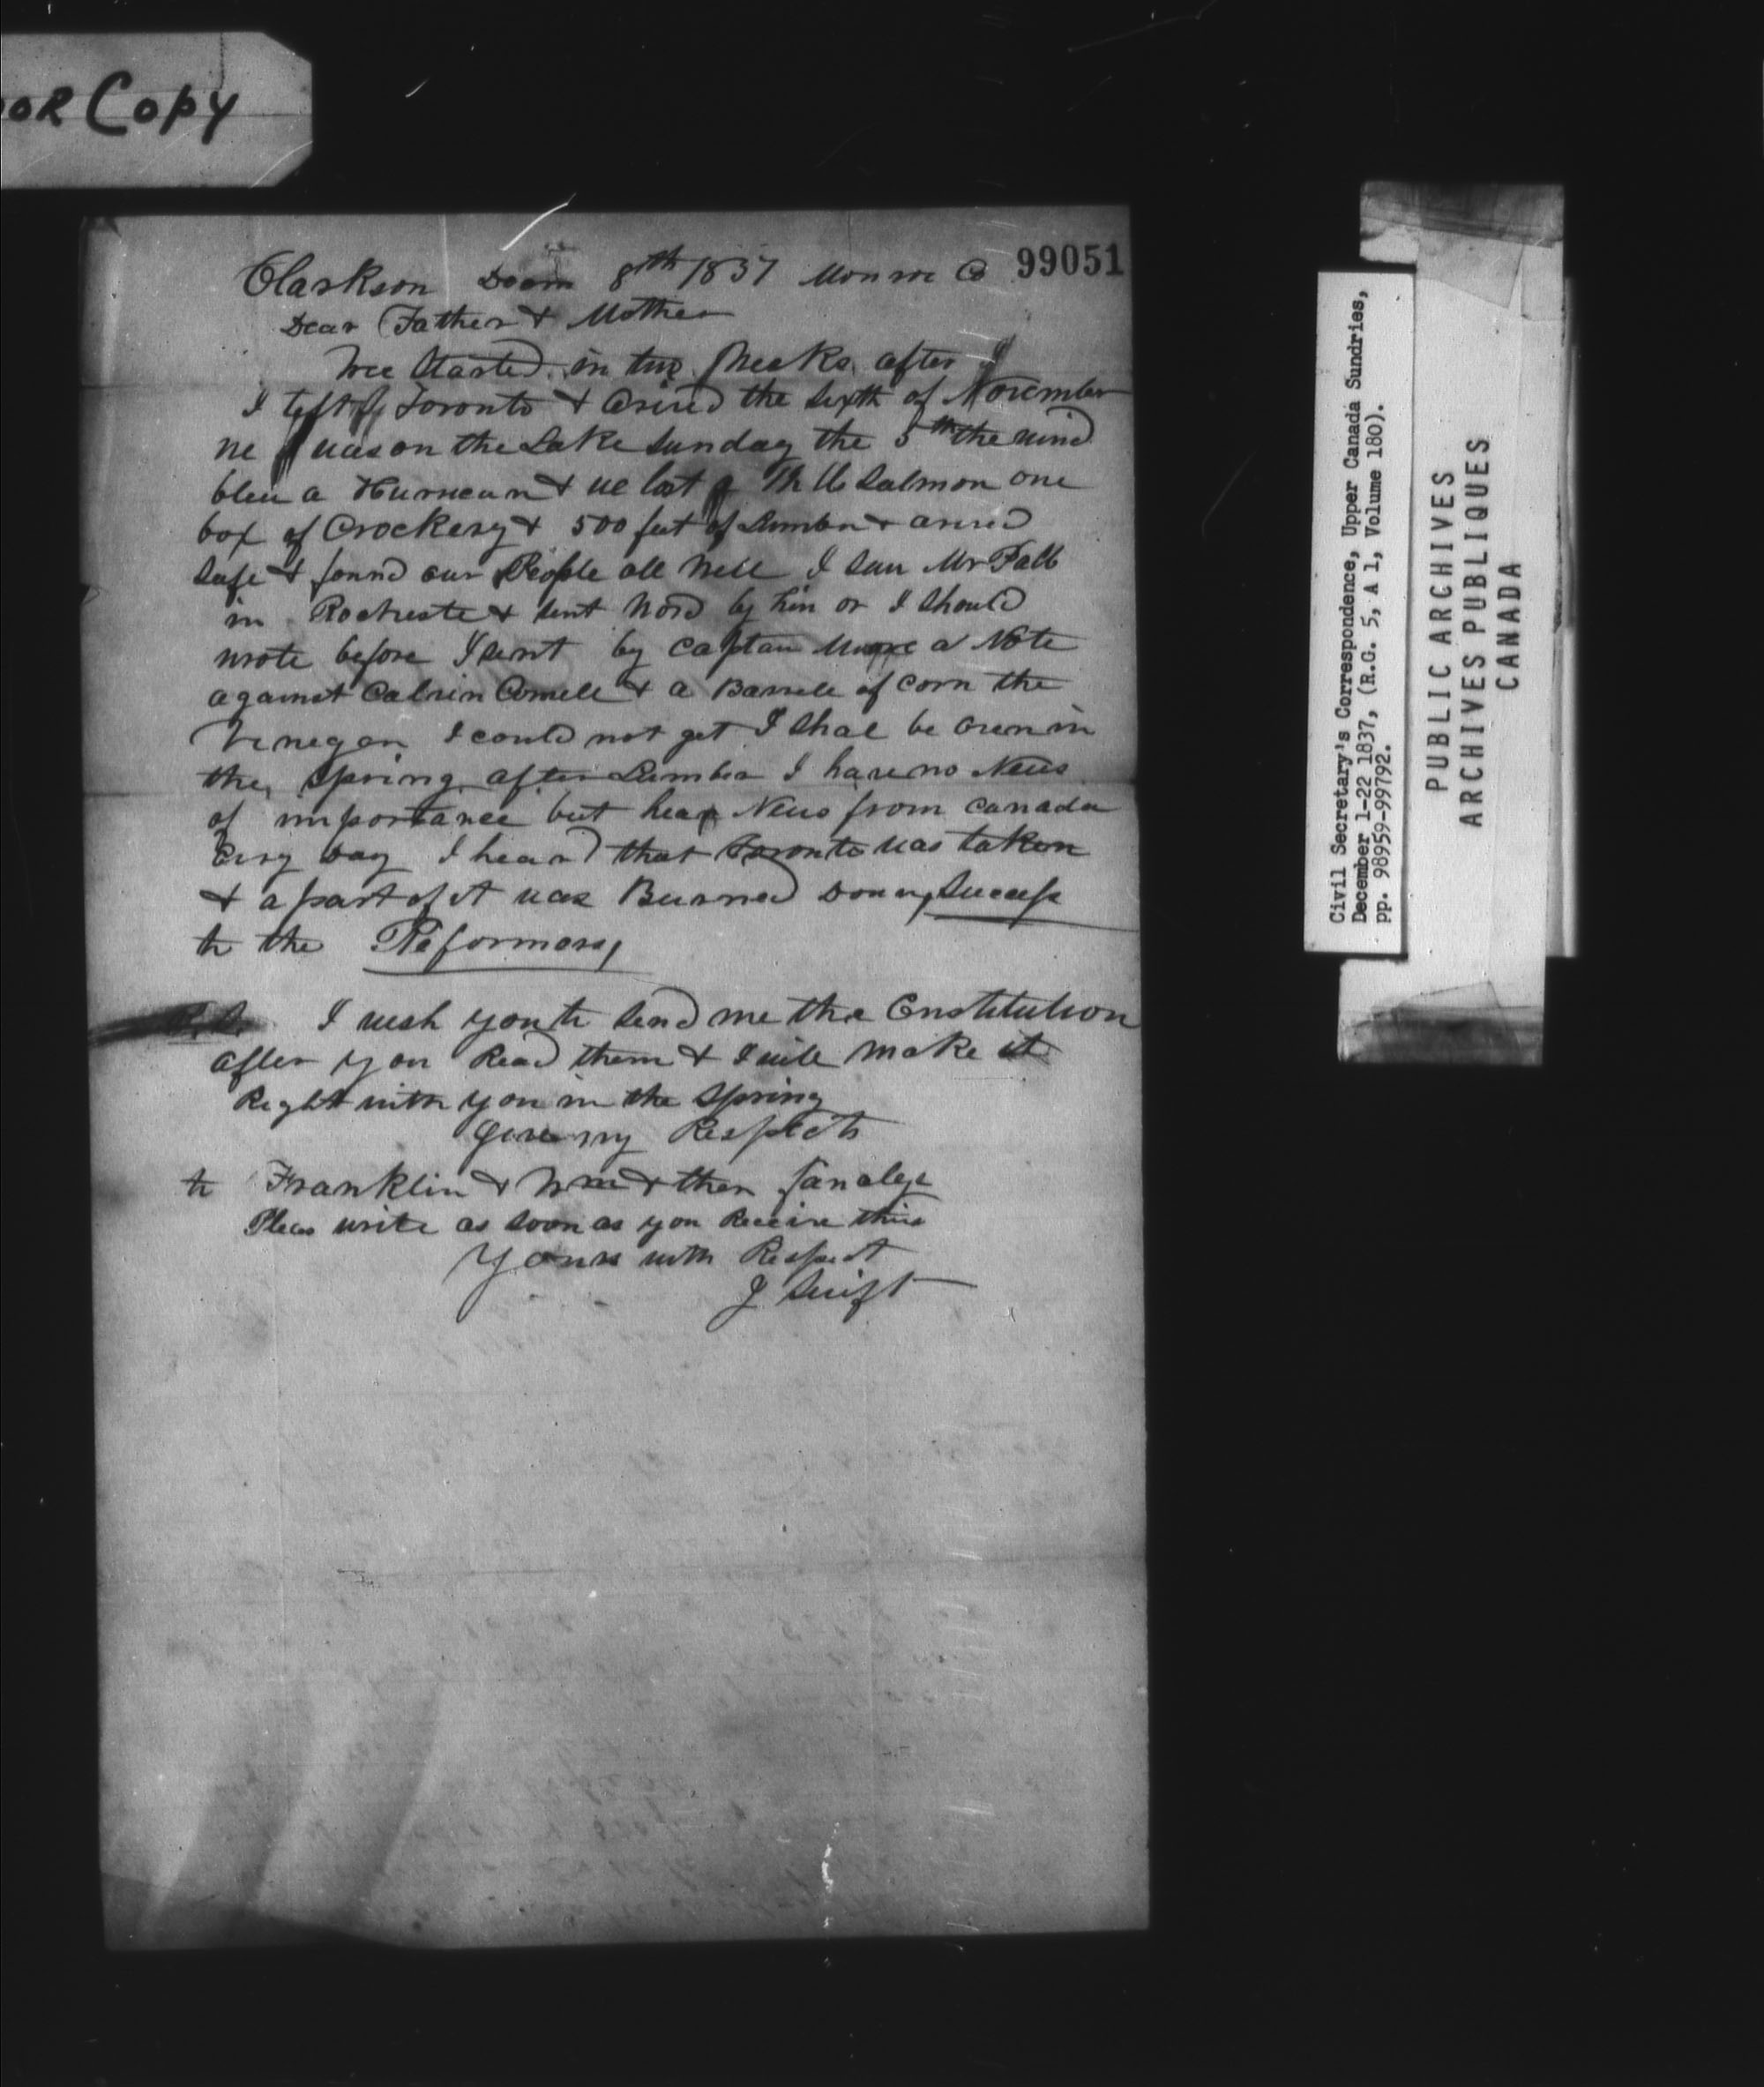 OOR COPY
99051
Clarkson Decm 8th 1837 Monroe Co
Dear Father & Mother
Wee Started in two Weeks after I
I left Toronto & arived the sixth of November
we was on the Lake Sunday the 5th the wind
blew a Hurricane & we lost Salmon one
box of Crockery & 500 feet of Lumber & arived
Safe & found our People all Well I saw Mr
in Rochester & sent Word by him or I should
wrote before I sent by Captan a Note
against Calvin & a Barrele of Corn the
Vinegar I could not get I shal be over in
the Spring after Lumber I have no News
of importance but hear News from Canada
Evry Day I heard that Toronto was taken
& a part of it was Burned Down, Success
to the Reformers,
P.S. I wish you to send me the Constitution
after you Read them & I will make it
Right with you in the Spring
Give my Respects
to Franklin & Wm & ther
Pleas write as soon as you Receive this
Yours with Respect
J Swift
Civil Secretary's Correspondence, Upper Canada Sundries,
December 1-22 1837, (R.G. 5, A 1, Volume 180).
pp. 98959-99792.
PUBLIC ARCHIVES
ARCHIVES PUBLIQUES
CANADA